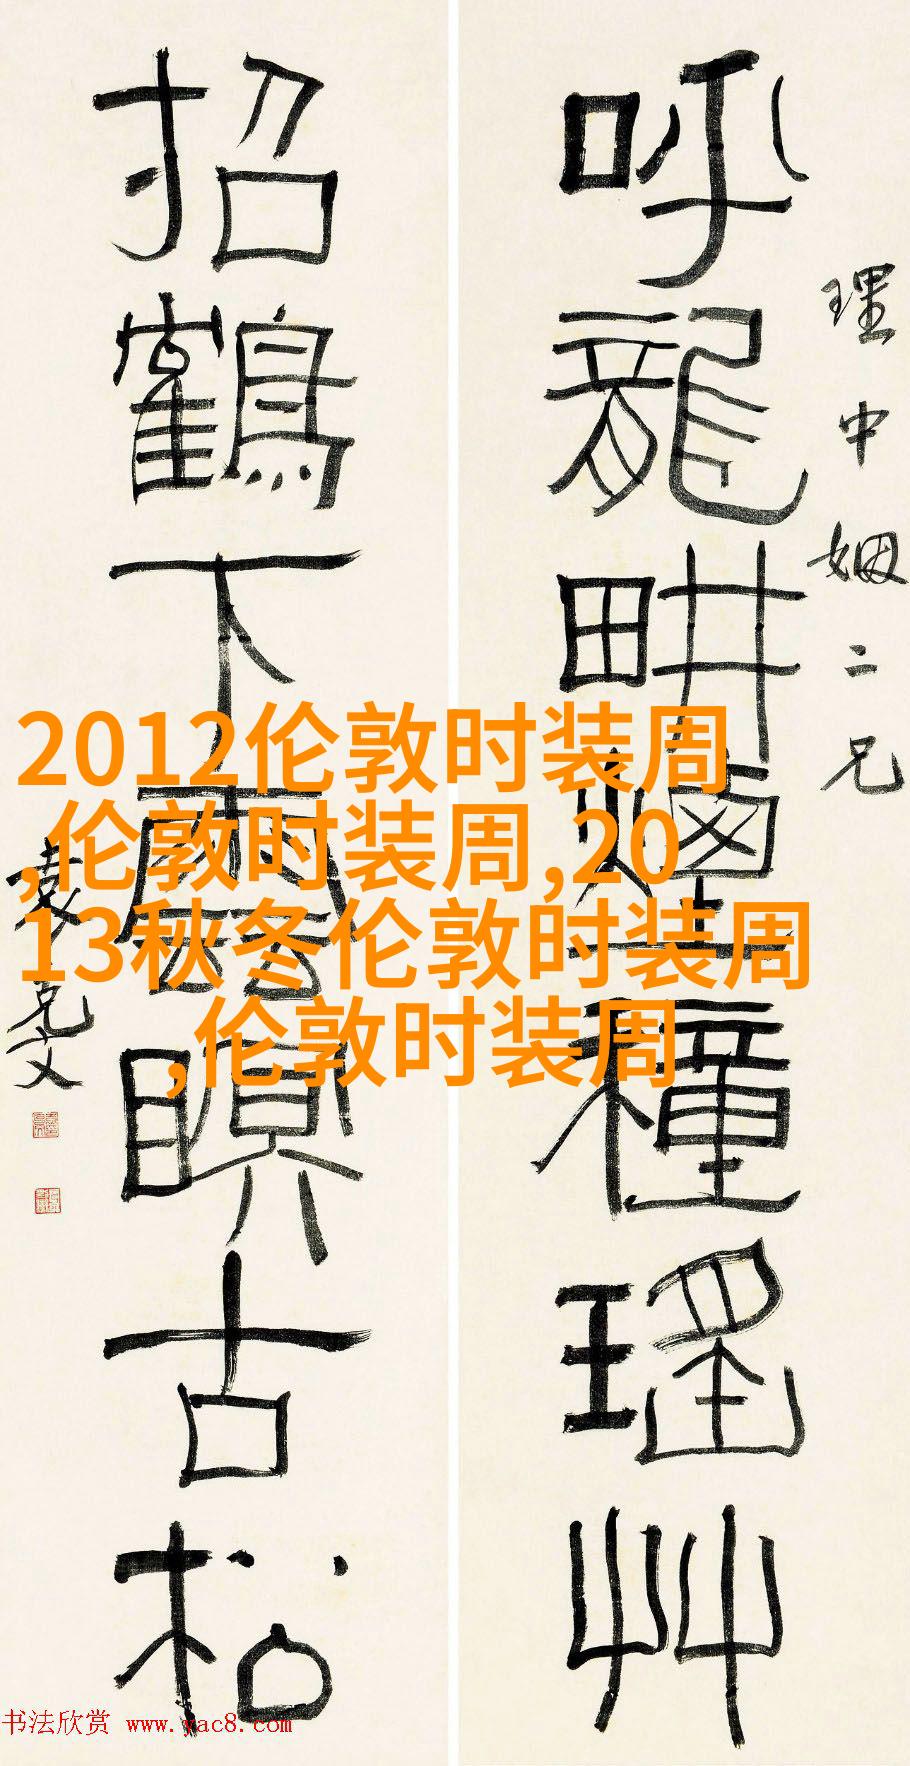 理中姻二兄
呼龍畊煙種瑤艸
招鶴下瞑古松
袁克文
2012伦敦时装周
,伦敦时装周,20
13秋冬伦敦时装周
,伦敦时装周
书法欣赏 www.yac8.com